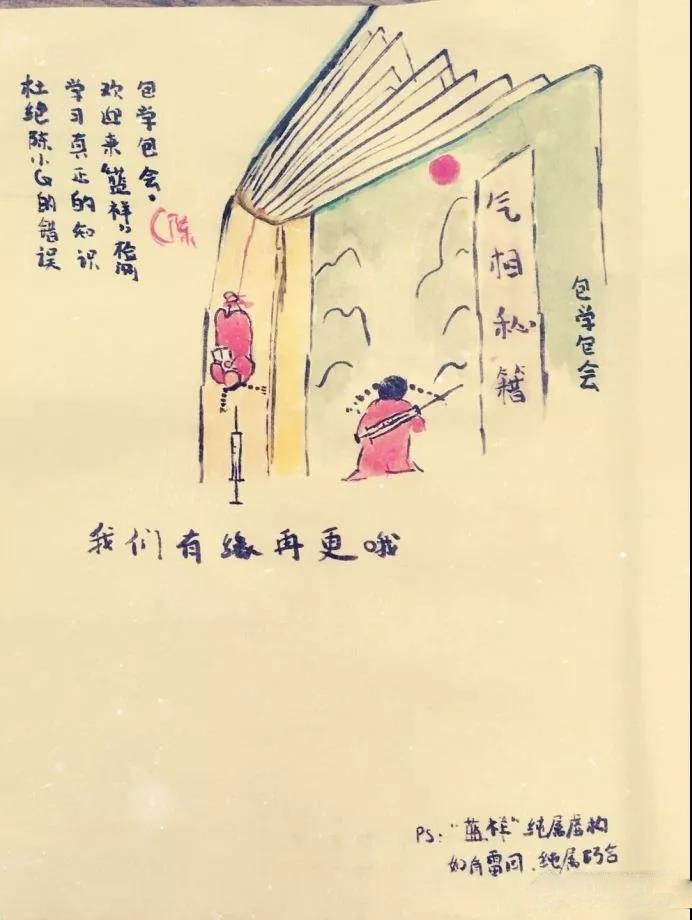 包学包会，
欢迎来"蓝祥"检测
学习真正的知识
杜绝陈小G的错误
陈
气相秘籍
包学包会
我们有缘再更哦
PS："蓝祥"纯属虚构
如有雷同、纯属巧合